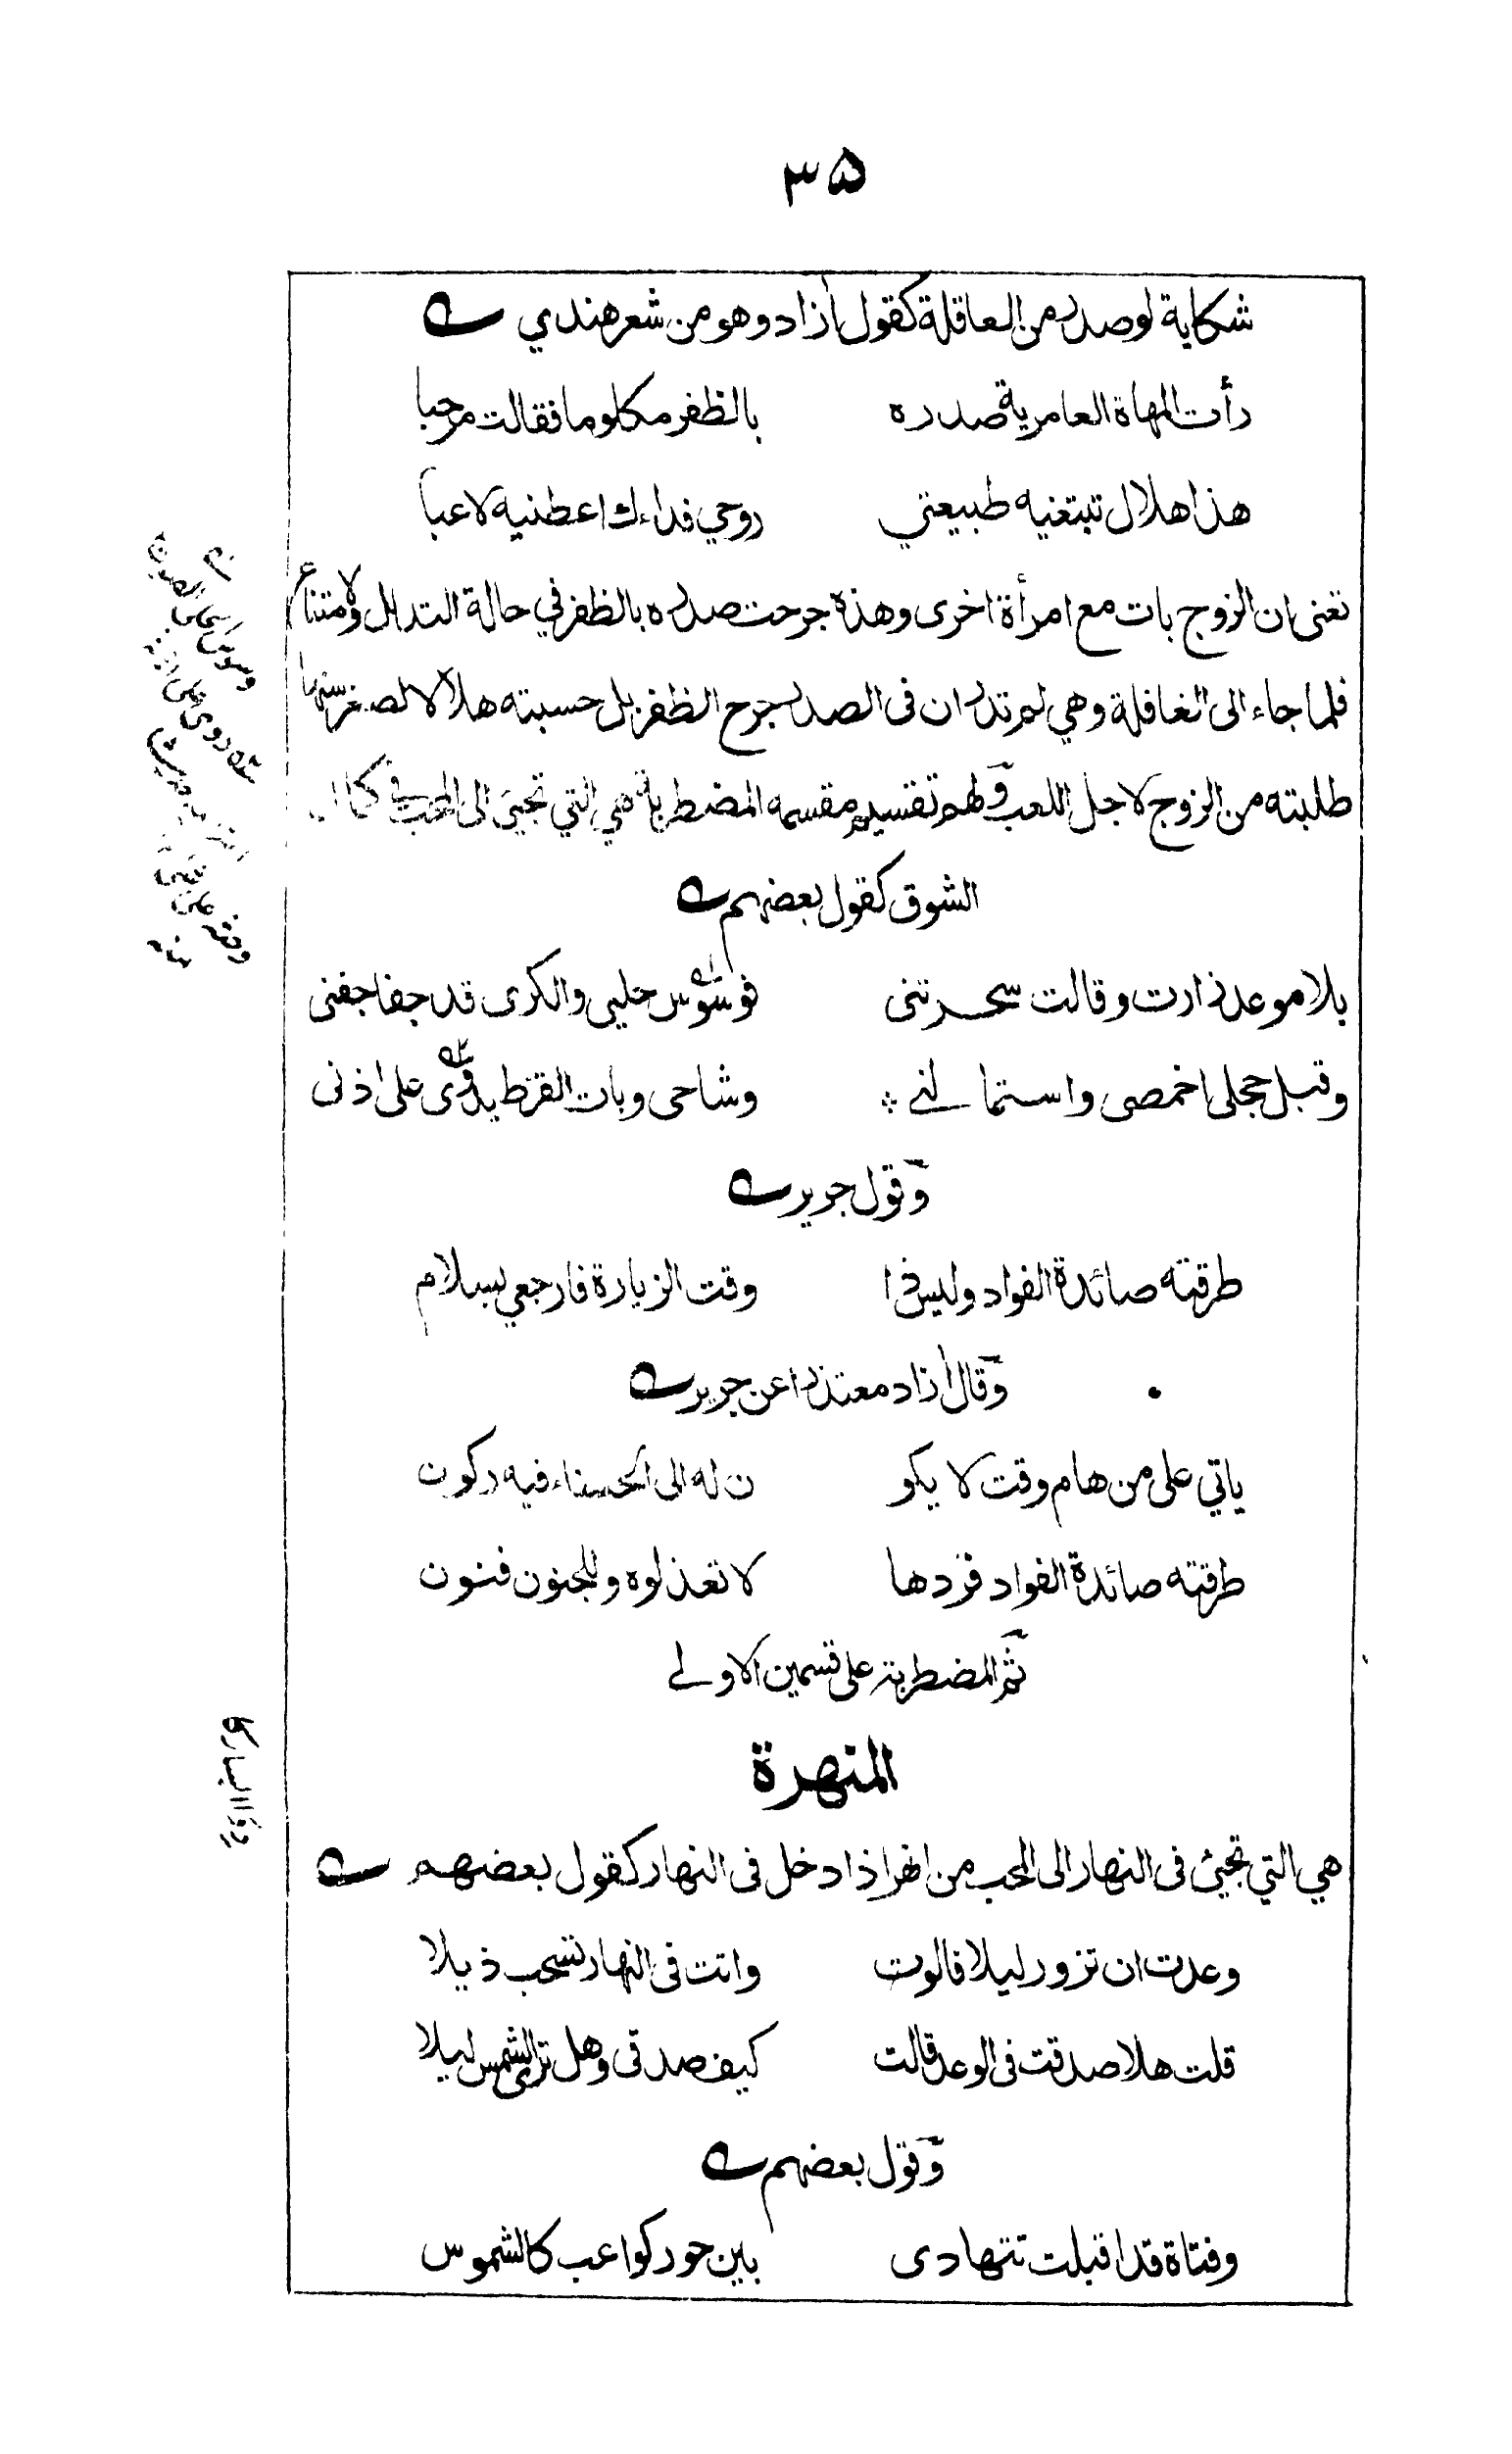 ۳۵
شكاية لوصدر من العاقلة كقول آزاد وهو من شعر هندي
رأت المهاة العامرية صدره بالظفر مكلوما فقالت مرحبا
هذا هلال تبتغيه طبيعتي روحي فداءك اعطنيه لاعبا
تعنى ان الزوج بات مع امرأة اخرى وهذه جرحت صدره بالظفر في حالة التدلل والامتناع
فلما جاء الى الغافلة وهي لم تدر ان فى الصدر جرح الظفر بل حسبته هلالا لصغر سنها
طلبته من الزوج لاجل اللعب ولهم تقسيم مقسمه المضطربة هي التي تجيئ الى المحب في كمال
الشوق كقول بعضهم
بلا موعد زارت وقالت سحرتنى فوسوس حليي والكرى قد جفا جفنى
وقبل حجلى اخمصى واستمالنے وشاحى وبات القرط يدوى على اذنى
وقول جرير
طرقته صائدة الفواد وليس ذا وقت الزيارة فارجعي بسلام
وقال آزاد معتذرا عن جرير
ياتي على من هام وقت لا يكو ن له الى الحسناء فيه ركون
طرقته صائدة الفواد فردها لا تعذلوه وللجنون فنون
ثم المضطربة على قسمين الاولے
المنهرة
هي التي تجيئ فى النهار الى المحب من انهر اذا دخل فى النهار كقول بعضهم
وعدت ان تزور ليلا فالوت واتت فى النهار تسحب ذيلا
قلت هلا صدقت فى الوعد قالت كيف صدقى وهل ترى الشمس ليلا
وقول بعضهم
وفتاة قد اقبلت تتهادى بين حور كواعب كالشموس